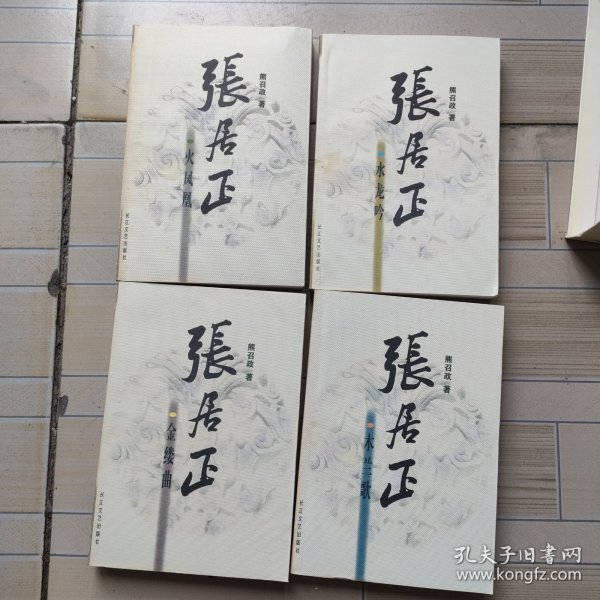 張居正
熊召政 著
火凤凰
长江文艺出版社
張居正
熊召政 著
水龙吟
长江文艺出版社
張居正
熊召政 著
金缕曲
长江文艺出版社
張居正
熊召政 著
木兰歌
长江文艺出版社
孔夫子旧书网
www.kongfz.com